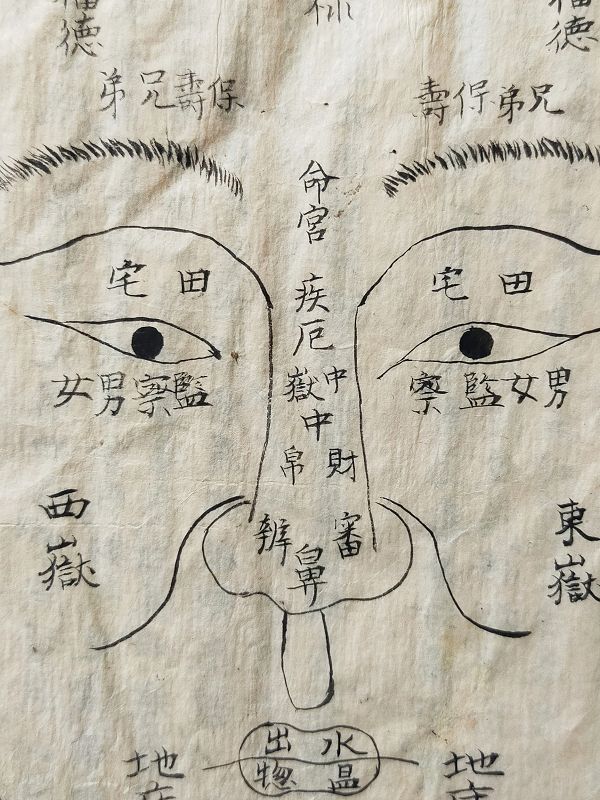 福德
福德
兄弟保壽
保壽兄弟
命宮
田宅
田宅
疾厄
男女監察
監察男女
中嶽
中
財帛
審辨
鼻
東嶽
西嶽
水
出
地
地